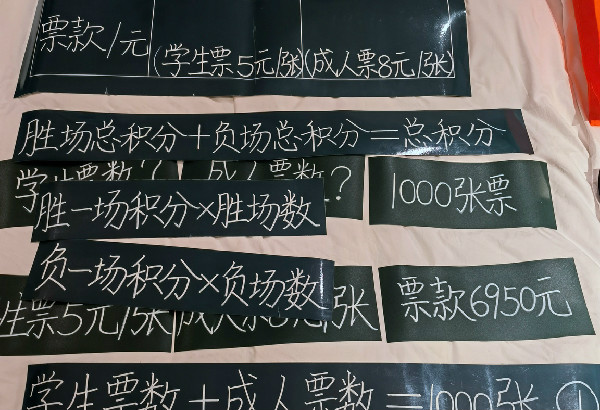 票款/元
(学生票5元/张)(成人票8元/张)
胜场总积分+负场总积分=总积分
学生票数? 成人票数? 1000张票
胜一场积分×胜场数
负一场积分×负场数
生票5元/张 成人票8元/张 票款6950元
学生票数+成人票数=1000张 ①